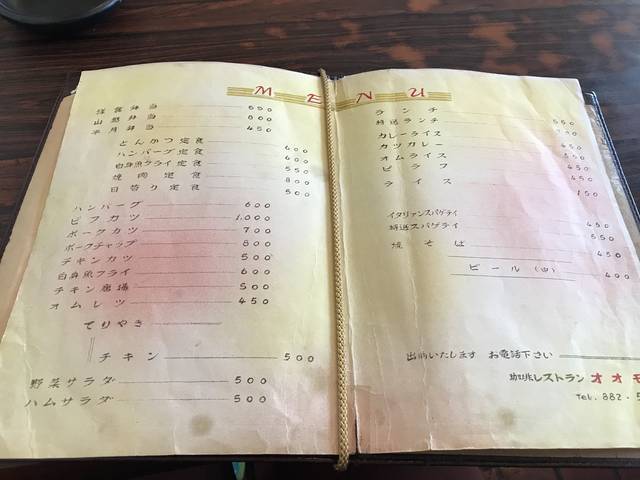 MENU
洋食弁当 650
山愁弁当 800
半月弁当 450
とんかつ定食 600
ハンバーグ定食 600
白身魚フライ定食 550
焼肉定食 800
日替り定食 500
ハンバーグ 600
ビフカツ 1,000
ポークカツ 700
ポークチャップ 800
チキンカツ 500
白身魚フライ 600
チキン唐揚 500
オムレツ 450
てりやき
チキン 500
野菜サラダ 500
ハムサラダ 500
ランチ 550
特送ランチ
カレーライス 450
カツカレー
オムライス 550
ピラフ 450
ライス 150
イタリアンスパゲティ 450
特送スパゲティ 550
焼そば 450
ビール (中) 400
出前いたします お電話下さい
レストラン オオモ
TEL. 882-5